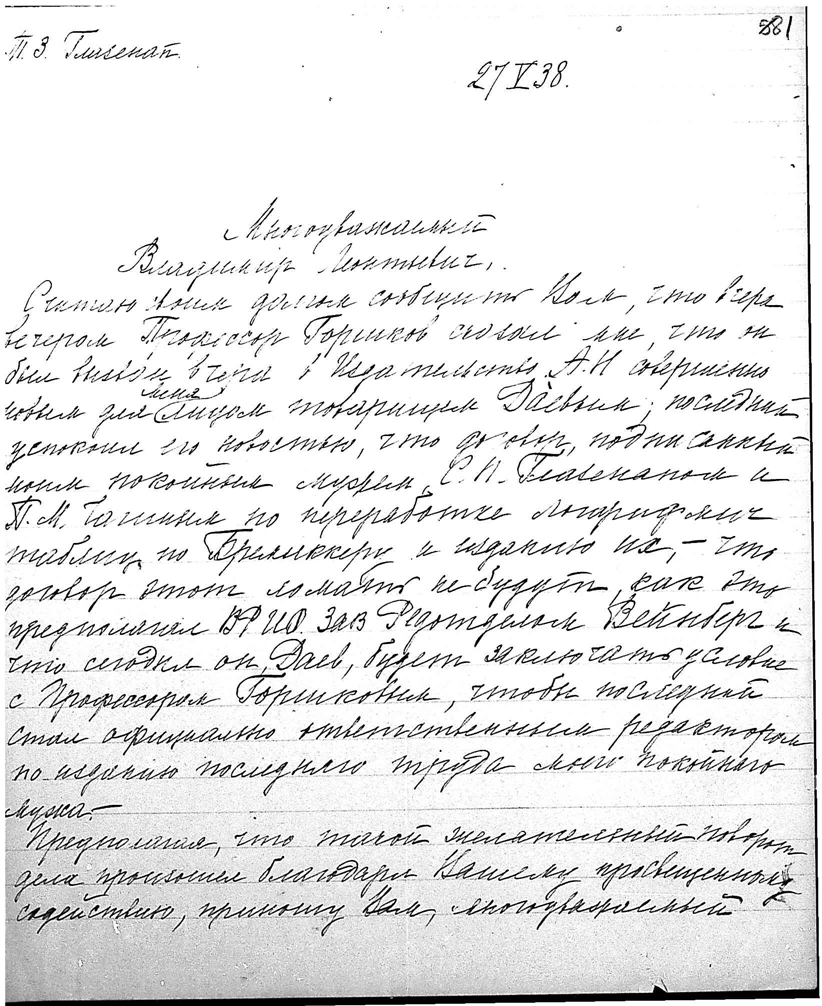 881
П. З. Глазенап.
27 V 38.
Многоуважаемый
Владимир Леонтьевич,
Считаю своим долгом сообщить Вам, что вчера
вечером Профессор Горшков сказал мне, что он
был вызван вчера в Издательство А.Н совершенно
новым для меня лицом товарищем Даевым; последний
успокоил его новостью, что договор, подписанный
моим покойным мужем, С. П. Глазенапом и
П. М. по переработке логарифмич
таблиц по Бремиккеру и изданию их, – что
договор этот ломать не будут, как это
предполагал ВРИО. Зав Редотделом Вейнберг и
что сегодня он, Даев, будет заключать условие
с Профессором Горшковым, чтобы последний
стал официально ответственным редактором
по изданию последняго труда моего покойнаго
мужа. –
Предполагая, что такой желательный поворот
дела произошел благодаря Вашему просвещенному
содействию, приношу Вам, многоуважаемый